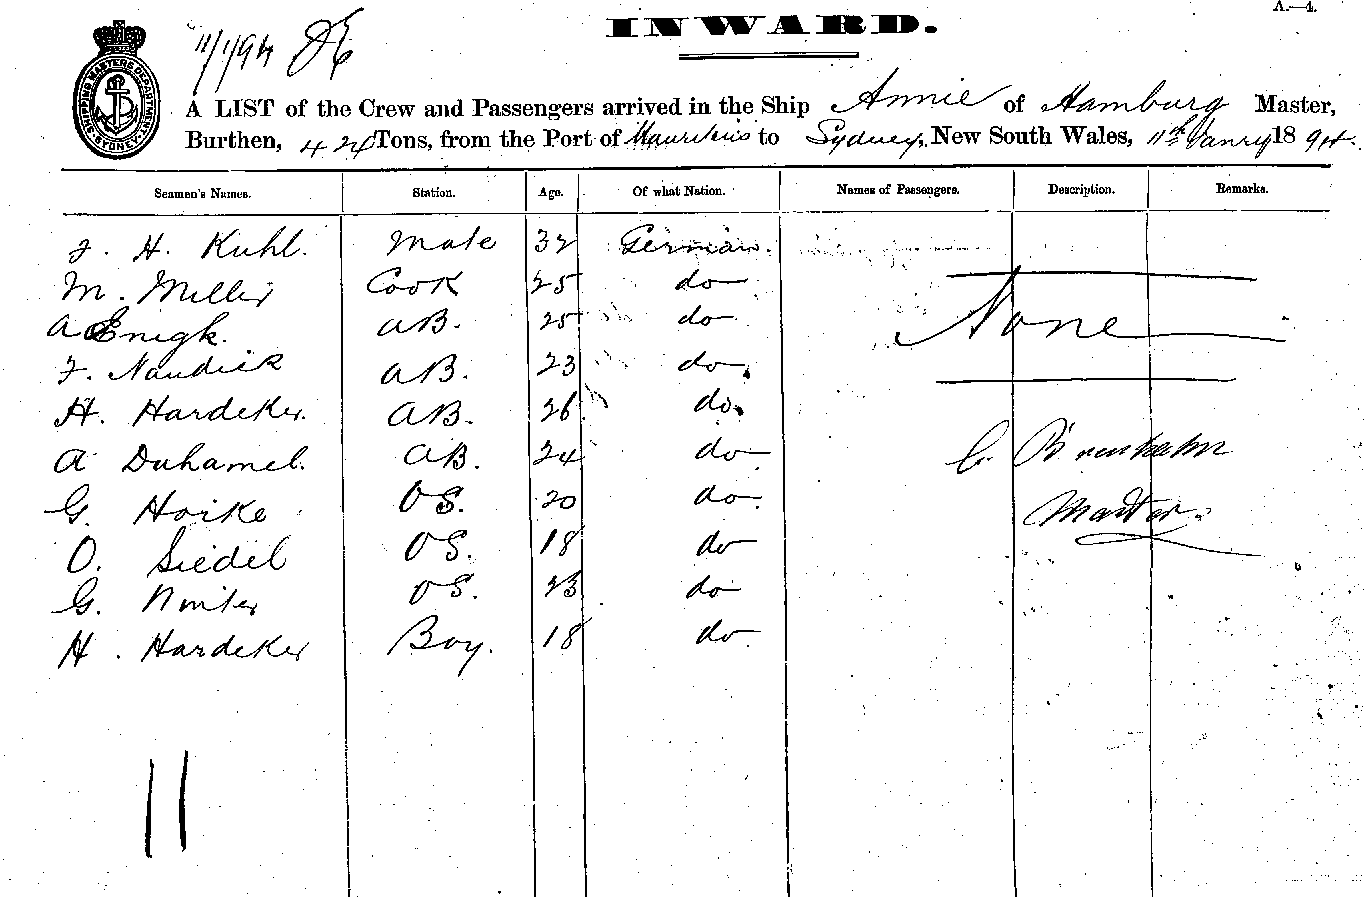 A.—4.
INWARD.
11/1/94
SHIPPING MASTERS DEPARTMENT SYDNEY
A LIST of the Crew and Passengers arrived in the Ship Annie of Hamburg Master,
Burthen, 424 Tons, from the Port of Mauritius to Sydney, New South Wales, 11th Janry 1894.
Seamen's Names. Station. Age. Of what Nation. Names of Passengers. Description. Remarks.
F. H. Kuhl. Mate 32 German.
M. Miller Cook 25 do
A Enigk. AB. 25 do
None
F. Naudick AB. 23 do
H. Hardeker. AB. 26 do.
A Duhamel. AB. 24 do
C.
G. Horke OS. 20 do.
Master.
O. Siedel OS. 18 do
G. OS. 23 do
H. Hardeker Boy. 18 do.
11